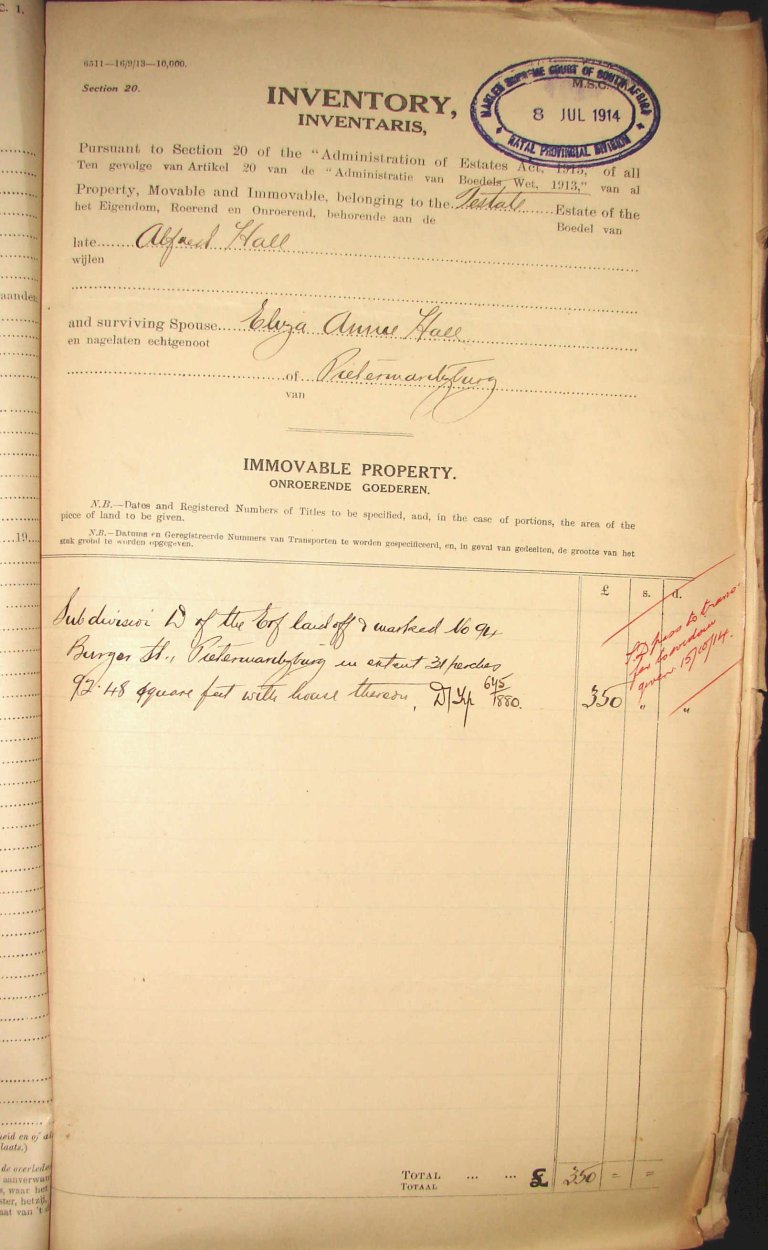 C. 1.
6511—16/9/13—10,000.
Section 20.
M.S.C.
MASTER SUPREME COURT OF SOUTH AFRICA
8 JUL 1914
NATAL PROVINCIAL DIVISION
INVENTORY,
INVENTARIS,
Pursuant to Section 20 of the "Administration of Estates Act, 1913, of all
Ten gevolge van Artikel 20 van de "Administratie van Boedels Wet, 1913," van al
Property, Movable and Immovable, belonging to the Testate Estate of the
het Eigendom, Roerend en Onroerend, behorende aan de Boedel van
late Alfred Hall
wijlen
and surviving Spouse Eliza Annie Hall
en nagelaten echtgenoot
of Pietermaritzburg
van
IMMOVABLE PROPERTY.
ONROERENDE GOEDEREN.
N.B.—Dates and Registered Numbers of Titles to be specified, and, in the case of portions, the area of the
piece of land to be given.
N.B.—Datums en Geregistreerde Nummers van Transporten te worden gespecificeerd, en, in geval van gedeelten, de grootte van het
stuk grond te worden opgegeven.
£ s. d.
Subdivision D of the Erf laid off & marked No 94
Burger St., Pietermaritzburg in extent 31 perches
92.48 square feet with house thereon, D/Trf 645/1880. 350 " "
pass to trans-
fer to widow
given 15/10/14.
TOTAL ... ... £ 350 = =
TOTAAL
aander
19
heid en of al
laats.)
de overlede
aanverwan
s, waar het
ster, hetzij
aat van 't